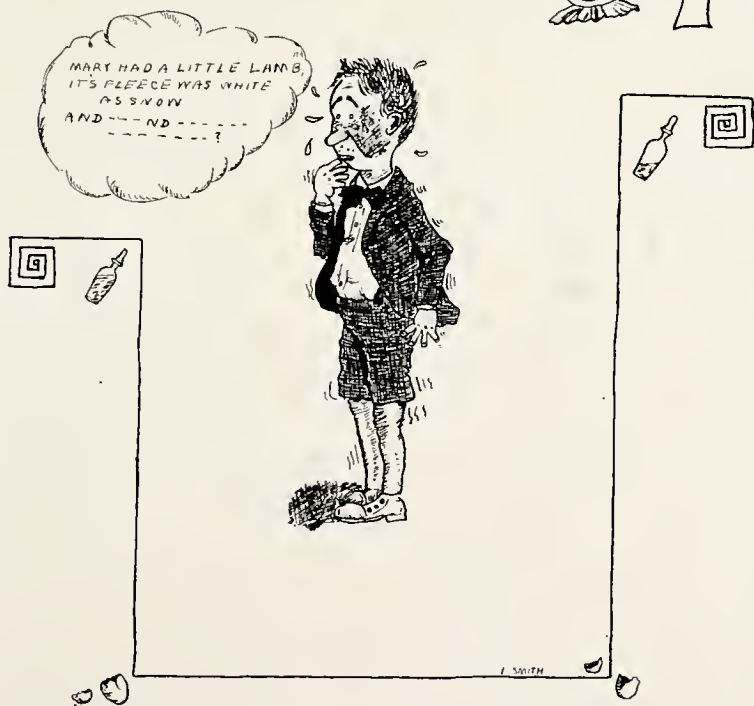 MARY HAD A LITTLE LAMB,
IT'S FLEECE WAS WHITE
AS SNOW
AND --- ND ------
--------?
SMITH